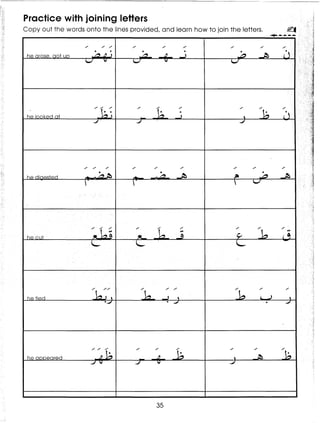 Practice with joining letters
Copy out the words onto the lines provided, and learn how to join the letters.
he arose, got up نَهَضَ نَـ ـهَـ ـضَ نَ هَ ضَ
he looked at نَظَرَ نَـ ـظَـ ـرَ نَ ظَ رَ
he digested هَضَمَ هَـ ـضَـ ـمَ هَ ضَ مَ
he cut قَطَعَ قَـ ـطَـ ـعَ قَ طَ عَ
he tied رَبَطَ رَ بَـ ـطَ رَ بَ طَ
he appeared ظَهَرَ ظَـ ـهَـ ـرَ ظَ هَ رَ
35